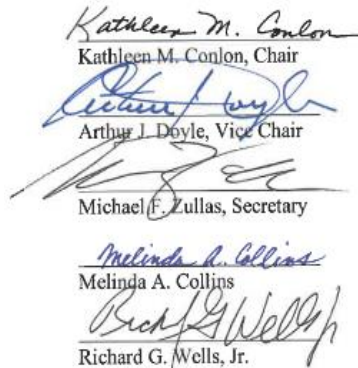 Kathleen M. Conlon
Kathleen M. Conlon, Chair
Arthur J Doyle
Arthur J. Doyle, Vice Chair
Michael F. Zullas, Secretary
Melinda A. Collins
Melinda A. Collins
Richd G Wells Jr
Richard G. Wells, Jr.